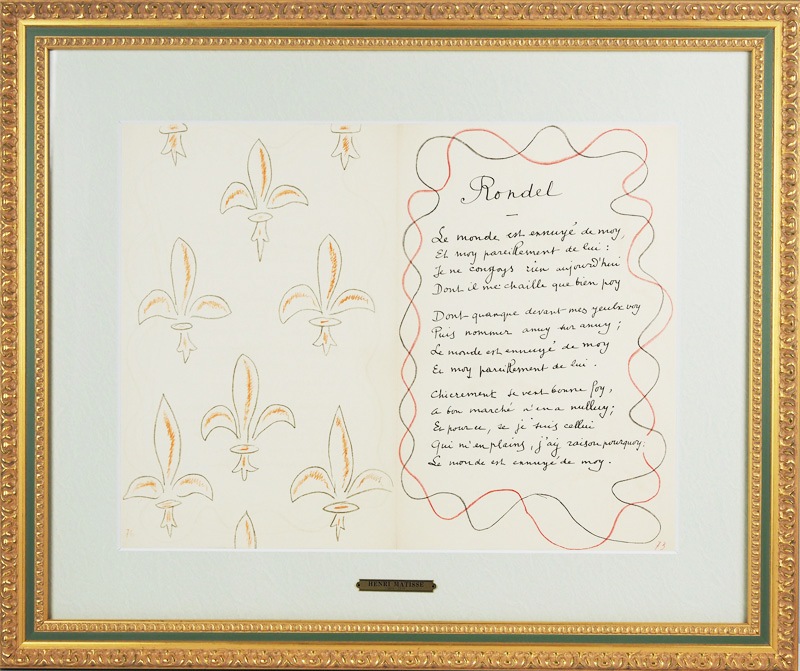 Rondel
Le monde est ennuyé de moy,
Et moy pareillement de lui :
Je ne congoys rien aujourd'hui
Dont il me chaille que bien poy
Dont quanque devant mes yeulx voy
Puis nommer anuy sur anuy ;
Le monde est ennuyé de moy
Et moy pareillement de lui .
Chierement se vent bonne foy,
a bon marché n'en a nulluy;
Et pour ce, se je suis cellui
Qui m'en plains, j'ay raison pourquoy;
Le monde est ennuyé de moy .
HENRI MATISSE